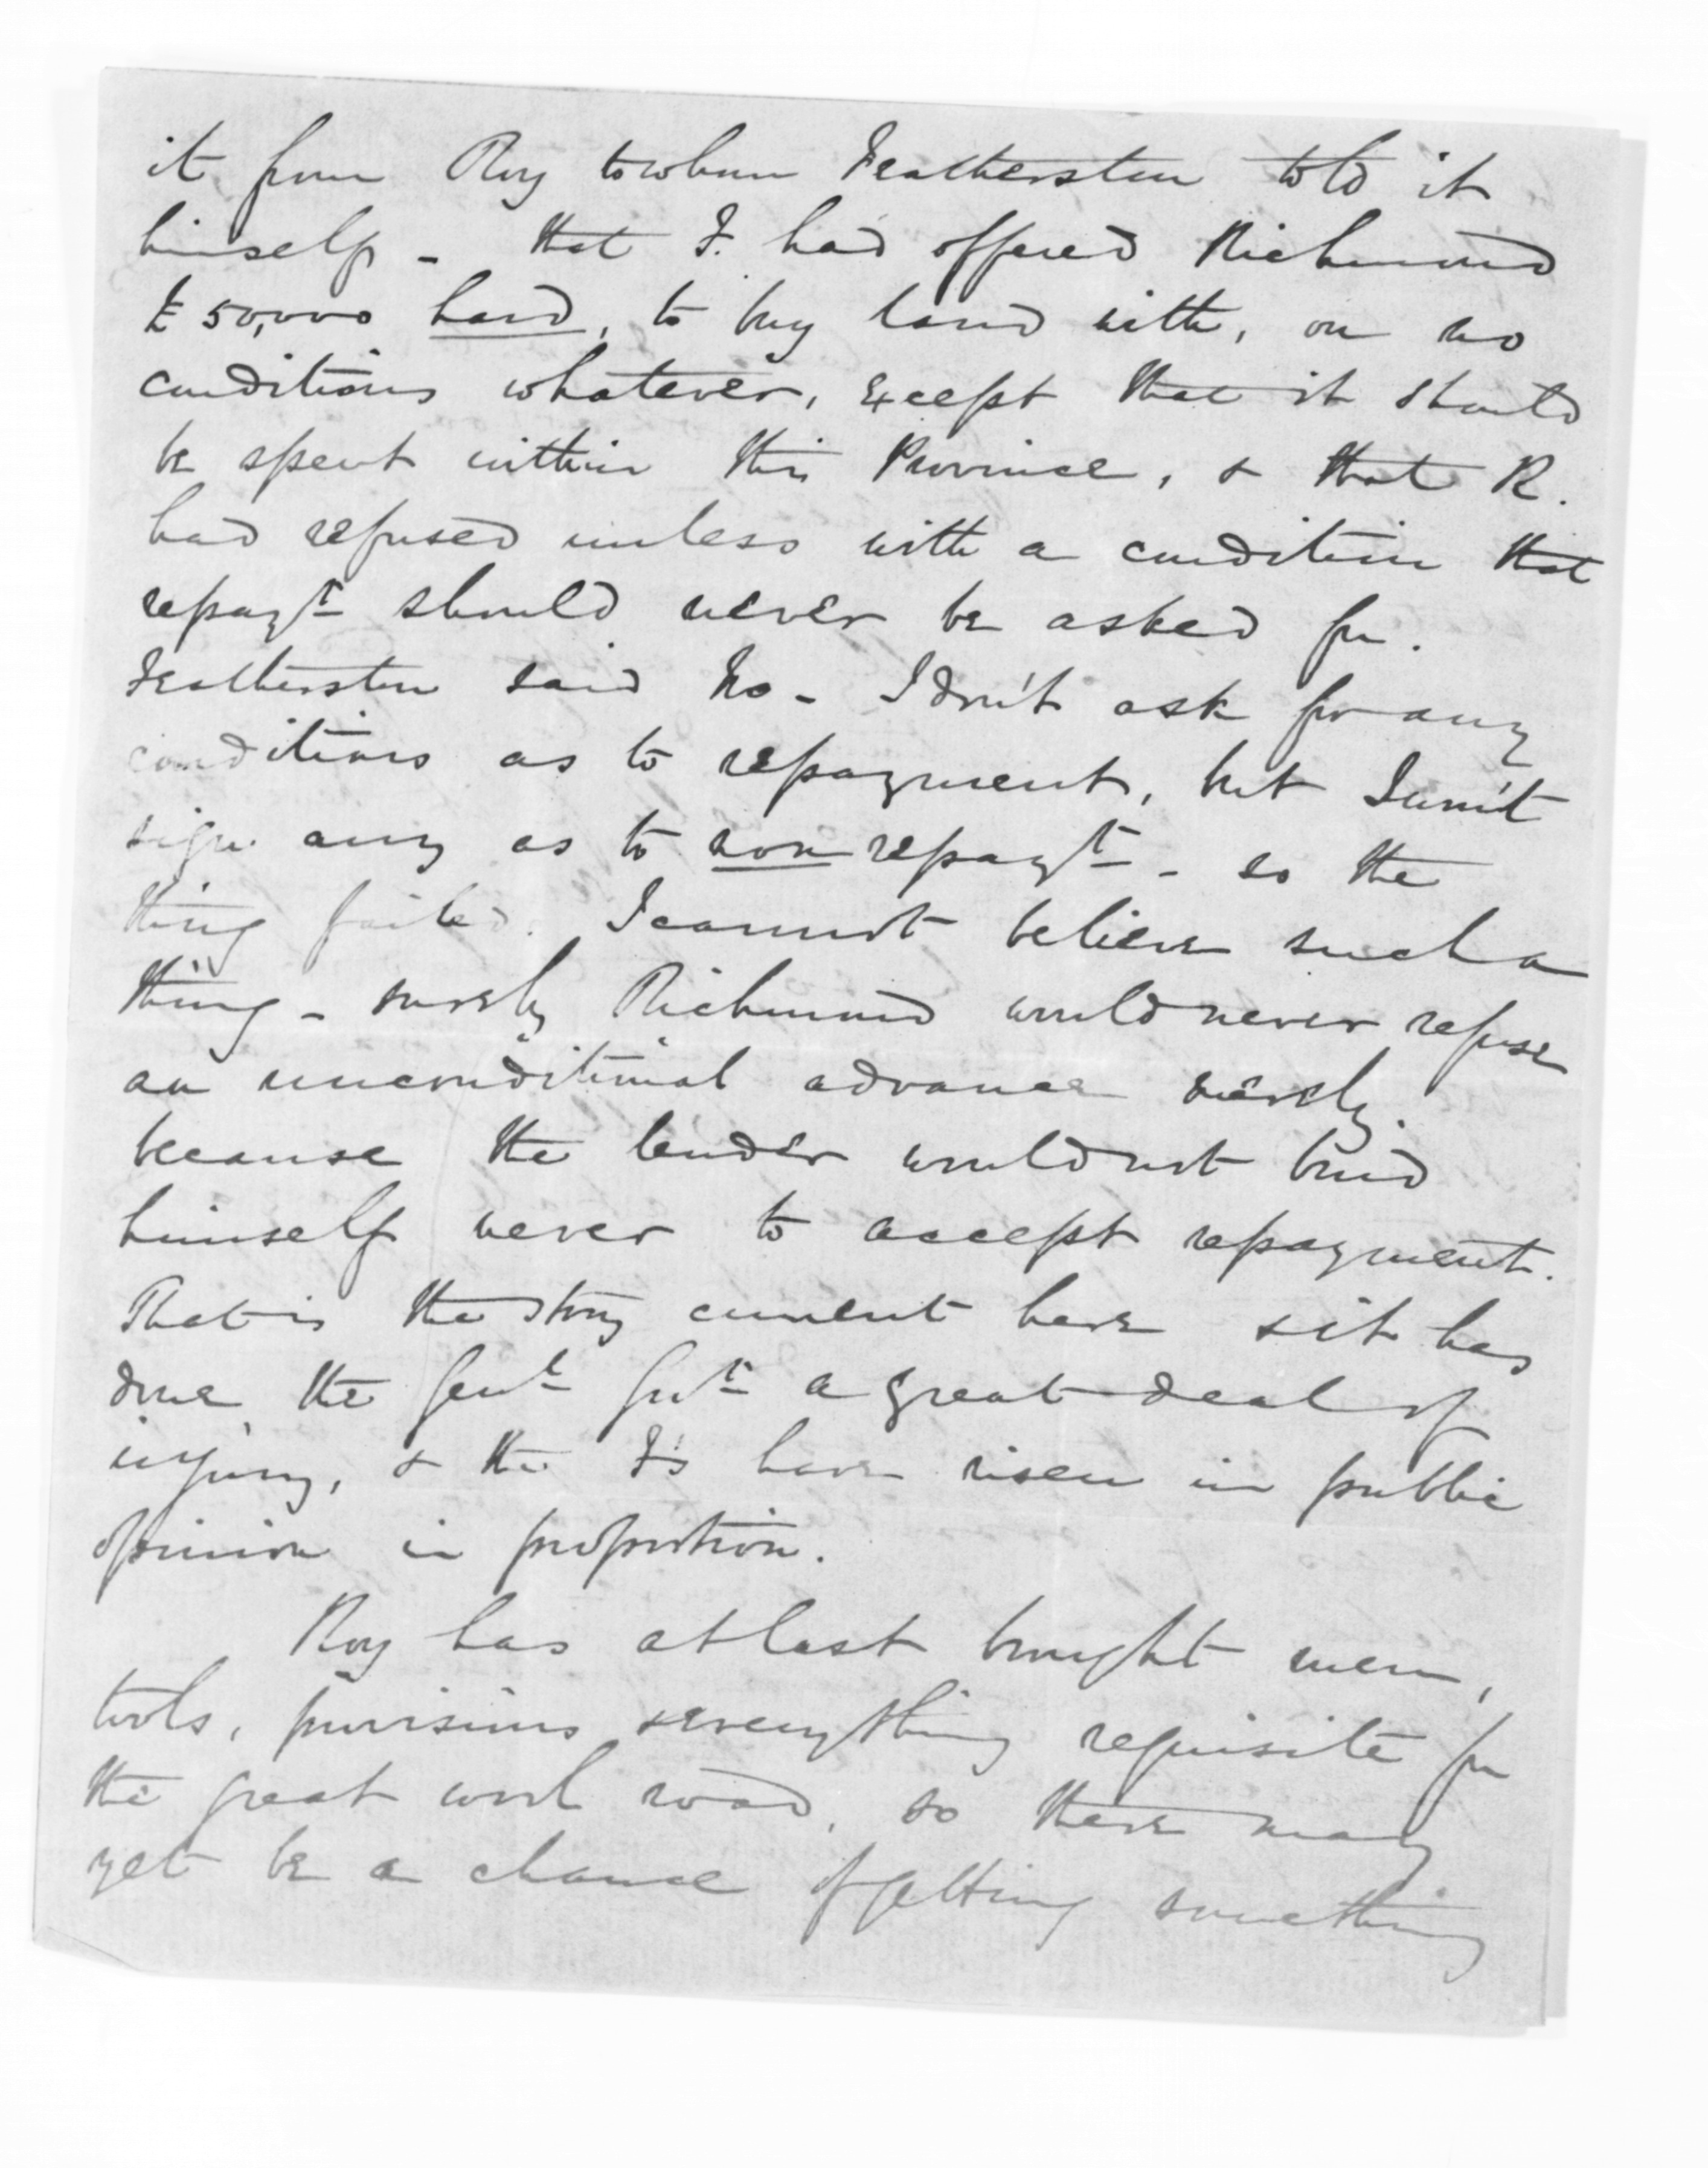 it from Roy to whom Featherston told it
himself - that F. had offered Richmond
£50,000 hard, to buy land with, on no
conditions whatever, except that it should
be spent within this Province, & that R.
had refused unless with a condition that
repayt should never be asked for.
Featherston said No - I don't ask for any
conditions as to repayment, but I won't
sign any as to non repayt - so the
thing failed. I cannot believe such a
thing - surely Richmond would never refuse
an unconditional advance merely
because the lender would not bind
himself never to accept repayment.
That is the story current here & it has
done the Genl Govt a great deal of
injury, & the F's have risen in public
opinion in proportion.
Roy has at last bought men,
tools, provisions & everything requisite for
the great road, so there may
yet be a chance of getting something